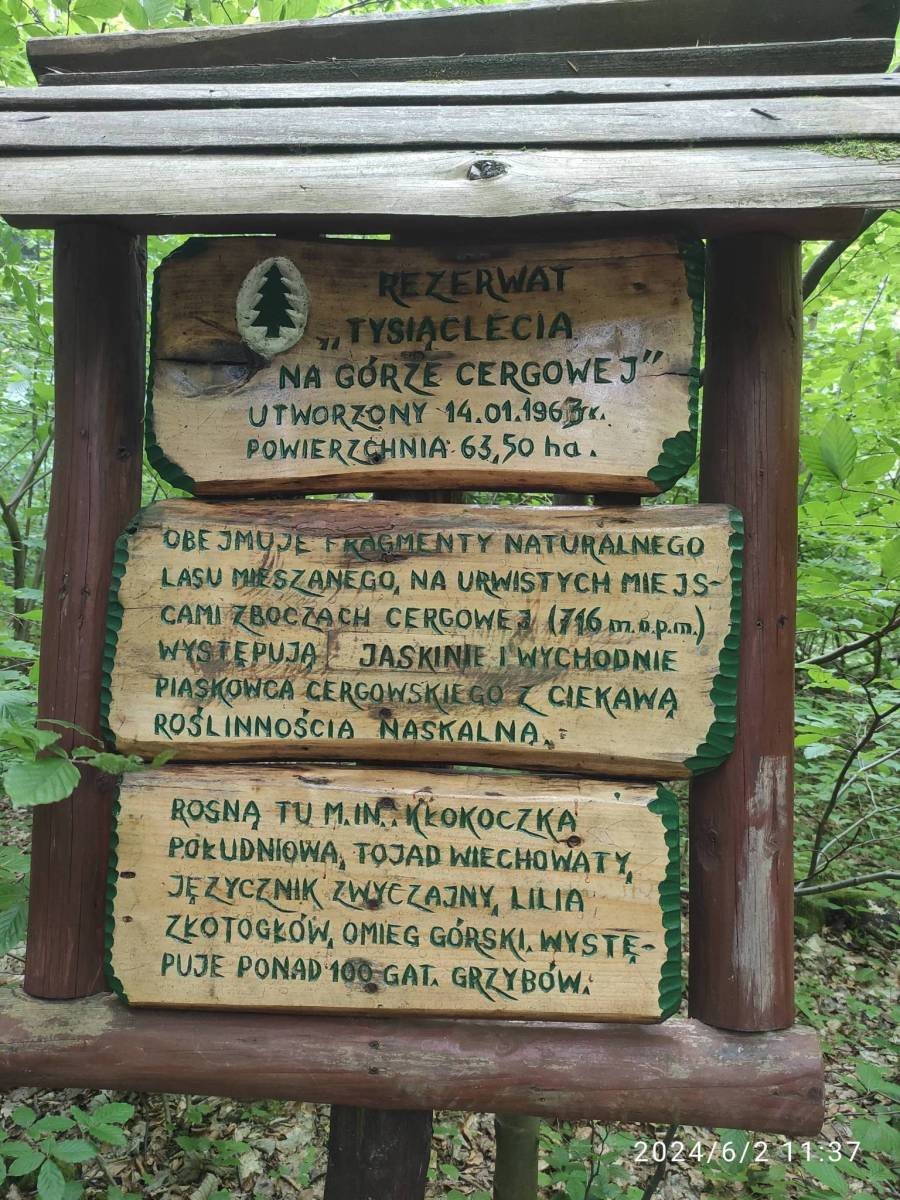 REZERWAT
„TYSIĄCLECIA
NA GÓRZE CERGOWEJ”
UTWORZONY 14.01.1963r.
POWIERZCHNIA 63,50 ha.
OBEJMUJE FRAGMENTY NATURALNEGO
LASU MIESZANEGO, NA URWISTYCH MIEJS-
CAMI ZBOCZACH CERGOWEJ (716 m.n.p.m.)
WYSTĘPUJĄ JASKINIE I WYCHODNIE
PIASKOWCA CERGOWSKIEGO Z CIEKAWĄ
ROŚLINNOŚCIA NASKALNĄ.
ROSNĄ TU M.IN.: KŁOKOCZKA
POŁUDNIOWA, TOJAD WIECHOWATY,
JĘZYCZNIK ZWYCZAJNY, LILIA
ZŁOTOGŁÓW, OMIEG GÓRSKI. WYSTĘ-
PUJE PONAD 100 GAT. GRZYBÓW.
2024/6/2 11:37